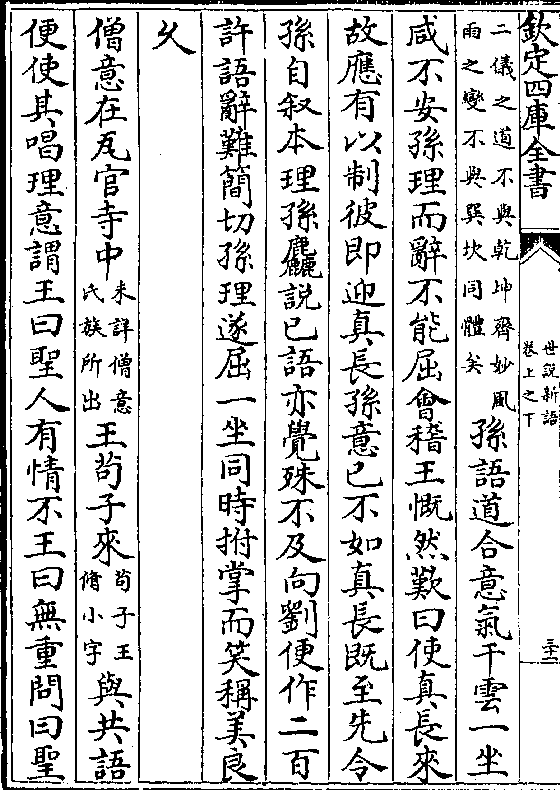 欽定四庫全書
世說新語
卷上之下
三十二
二儀之道不與乾坤齊妙風
雨之變不與巽坎同體矣
孫語道合意氣干雲一坐
咸不安孫理而辭不能屈會稽王慨然歎曰使真長來
故應有以制彼即迎真長孫意已不如真長既至先令
孫自叙本理孫麤說已語亦覺殊不及向劉便作二百
許語辭難簡切孫理遂屈一坐同時拊掌而笑稱美良
久
僧意在瓦官寺中
未詳僧意
氏族所出
王茍子來
茍子王
脩小字
與共語
便使其唱理意謂王曰聖人有情不王曰無重問曰聖